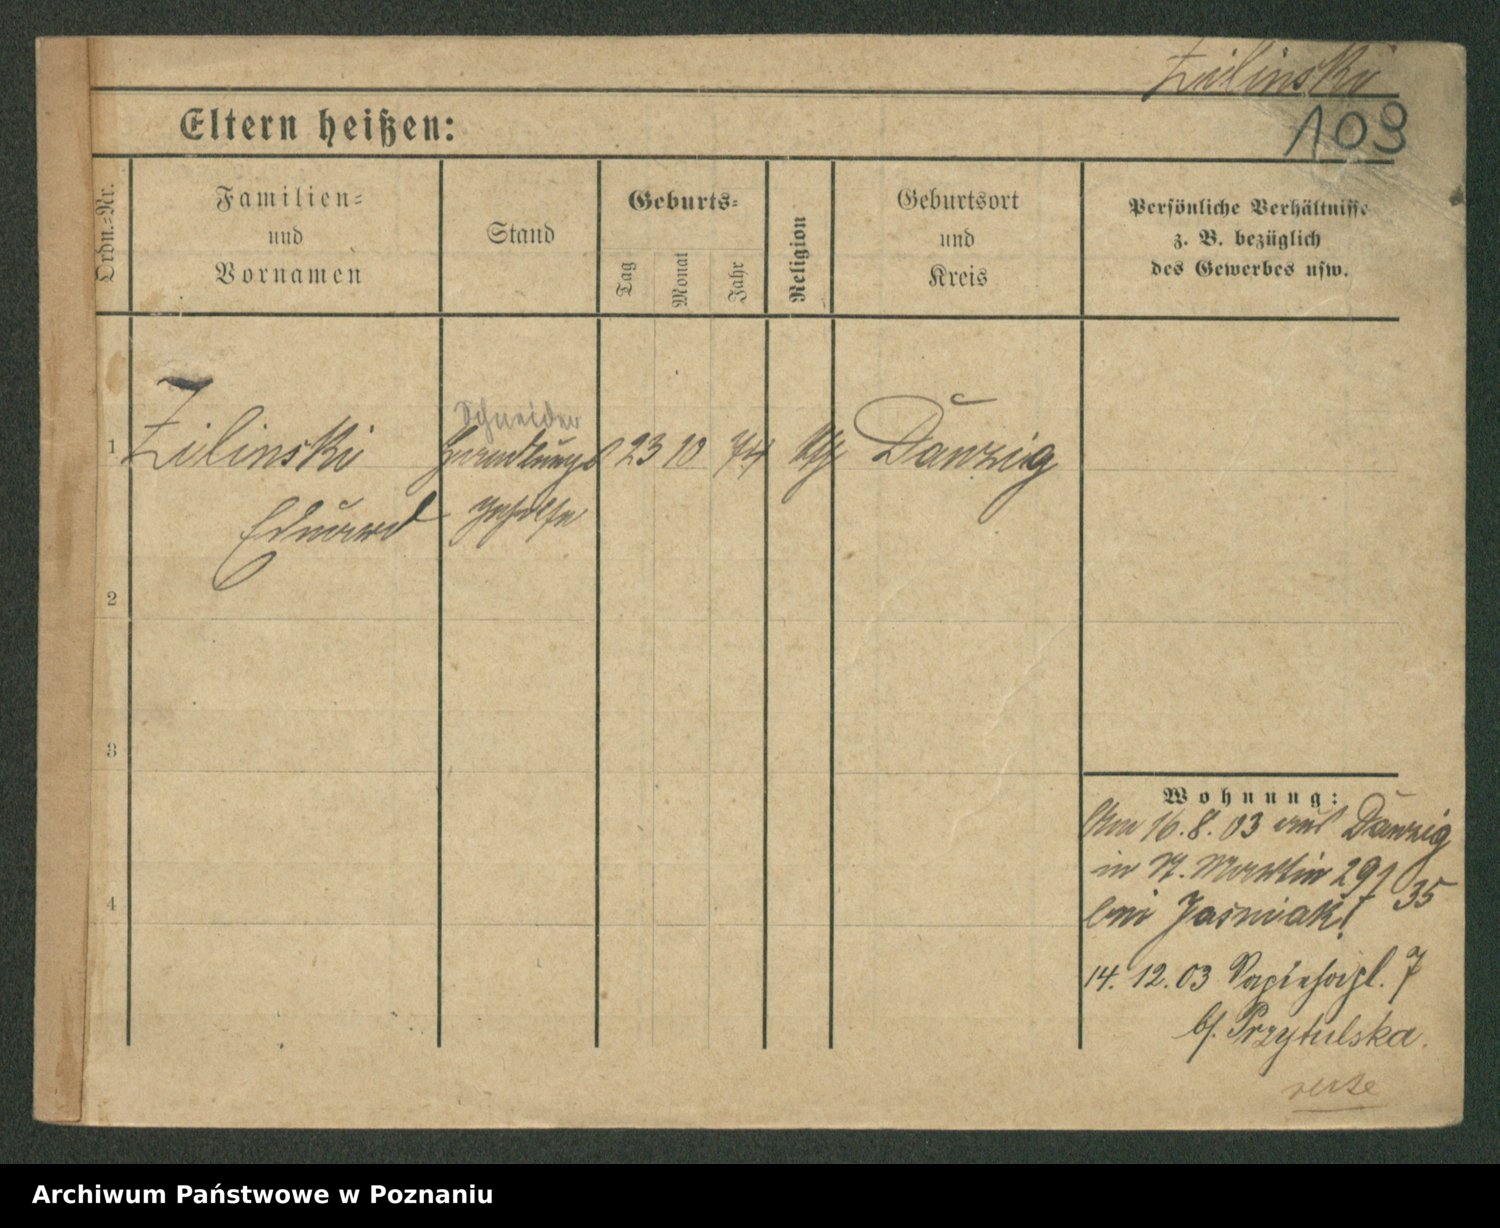 Zilinski
103
Eltern heißen:
Ordn.-Nr.
Familien-
und
Vornamen
Stand
Geburts-
Tag
Monat
Jahr
Religion
Geburtsort
und
Kreis
Persönliche Verhältnisse
z. B. bezüglich
des Gewerbes usw.
Schneider
1 Zilinski Handlungs 23 10 74 Danzig
Eduard gehilfe
2
3
4
Wohnung:
Am 16.8.03 aus Danzig
in St. Martin 29/35
bei Jasniak!
14.12.03 Sapiehapl. 7
bei Przytulska.
verte
Archiwum Państwowe w Poznaniu